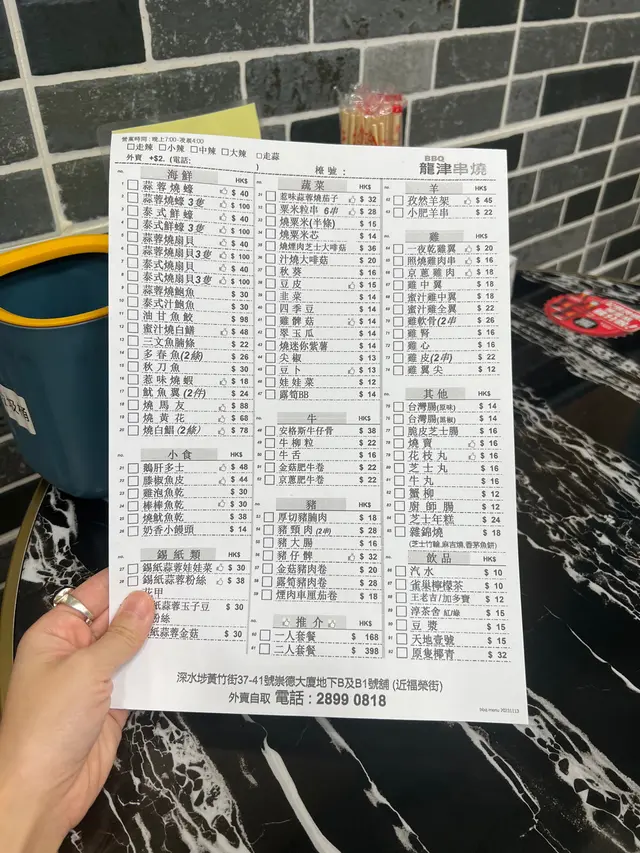 營業時間 : 晚上7:00-凌晨4:00
□走辣 □小辣 □中辣 □大辣 □走蒜
外賣 +$2. (電話: ) 檯號 :
BBQ
龍津串燒
海鮮 HK$
蒜蓉燒蠔 $ 40
蒜蓉燒蠔 3隻 $ 100
泰式鮮蠔 $ 40
泰式鮮蠔 3隻 $ 100
蒜蓉燒扇貝 $ 40
蒜蓉燒扇貝3隻 $ 100
泰式燒扇貝 $ 40
泰式燒扇貝3隻 $ 100
蒜蓉燒鮑魚 $ 30
泰式汁鮑魚 $ 30
油甘魚鮫 $ 98
蜜汁燒白鱔 $ 48
三文魚腩條 $ 22
多春魚(2條) $ 26
秋刀魚 $ 30
惹味燒蝦 $ 18
魷魚翼 (2件) $ 24
燒馬友 $ 88
燒黃花 $ 68
燒白鯧 (2條) $ 78
小食 HK$
鵝肝多士 $ 48
滕椒魚皮 $ 44
雞泡魚乾 $ 30
棒棒魚乾 $ 30
燒魷魚乾 $ 38
奶香小饅頭 $ 14
錫紙類 HK$
錫紙蒜蓉娃娃菜 $ 30
錫紙蒜蓉粉絲 $ 38
花甲
紙蒜蓉玉子豆 $ 30
粉絲
紙蒜蓉金菇 $ 30
蔬菜 HK$
惹味蒜蓉燒茄子 $ 32
粟米粒串 6串 $ 28
燒粟米(半條) $ 15
燒粟米芯 $ 14
燒煙肉芝士大啡菇 $ 36
汁燒大啡菇 $ 20
秋葵 $ 16
豆皮 $ 15
韭菜 $ 14
四季豆 $ 14
雞髀菇 $ 14
翠玉瓜 $ 14
燒迷你紫薯 $ 14
尖椒 $ 13
豆卜 $ 13
娃娃菜 $ 12
露筍BB $ 14
牛 HK$
安格斯牛仔骨 $ 38
牛柳粒 $ 22
牛舌 $ 16
金菇肥牛卷 $ 22
京蔥肥牛卷 $ 22
豬 HK$
厚切豬腩肉 $ 18
豬頸肉 (2串) $ 28
豬大腸 $ 16
豬仔髀 $ 32
金菇豬肉卷 $ 20
露筍豬肉卷 $ 28
煙肉車厘茄卷 $ 18
推介 HK$
一人套餐 $ 168
二人套餐 $ 398
羊 HK$
孜然羊架 $ 45
小肥羊串 $ 22
雞 HK$
一夜乾雞翼 $ 20
照燒雞肉串 $ 16
京蔥雞肉 $ 18
雞中翼 $ 18
蜜汁雞中翼 $ 18
蜜汁雞全翼 $ 22
雞軟骨(2串) $ 26
雞腎 $ 16
雞心 $ 16
雞皮(2串) $ 22
雞翼尖 $ 12
其他 HK$
台灣腸(原味) $ 14
台灣腸(黑椒) $ 14
脆皮芝士腸 $ 16
燒賣 $ 16
花枝丸 $ 16
芝士丸 $ 16
牛丸 $ 16
蟹柳 $ 12
廚師腸 $ 12
芝士年糕 $ 24
雜錦燒 $ 18
(芝士竹輪,麻吉燒,香茅魚餅)
飲品 HK$
汽水 $ 10
雀巢檸檬茶 $ 10
王老吉/加多寶 $ 12
淳茶舍 紅/綠 $ 15
豆漿 $ 15
天地壹號 $ 15
原隻椰青 $ 32
深水埗黃竹街37-41號崇德大廈地下B及B1號舖 (近福榮街)
外賣自取 電話 : 2899 0818